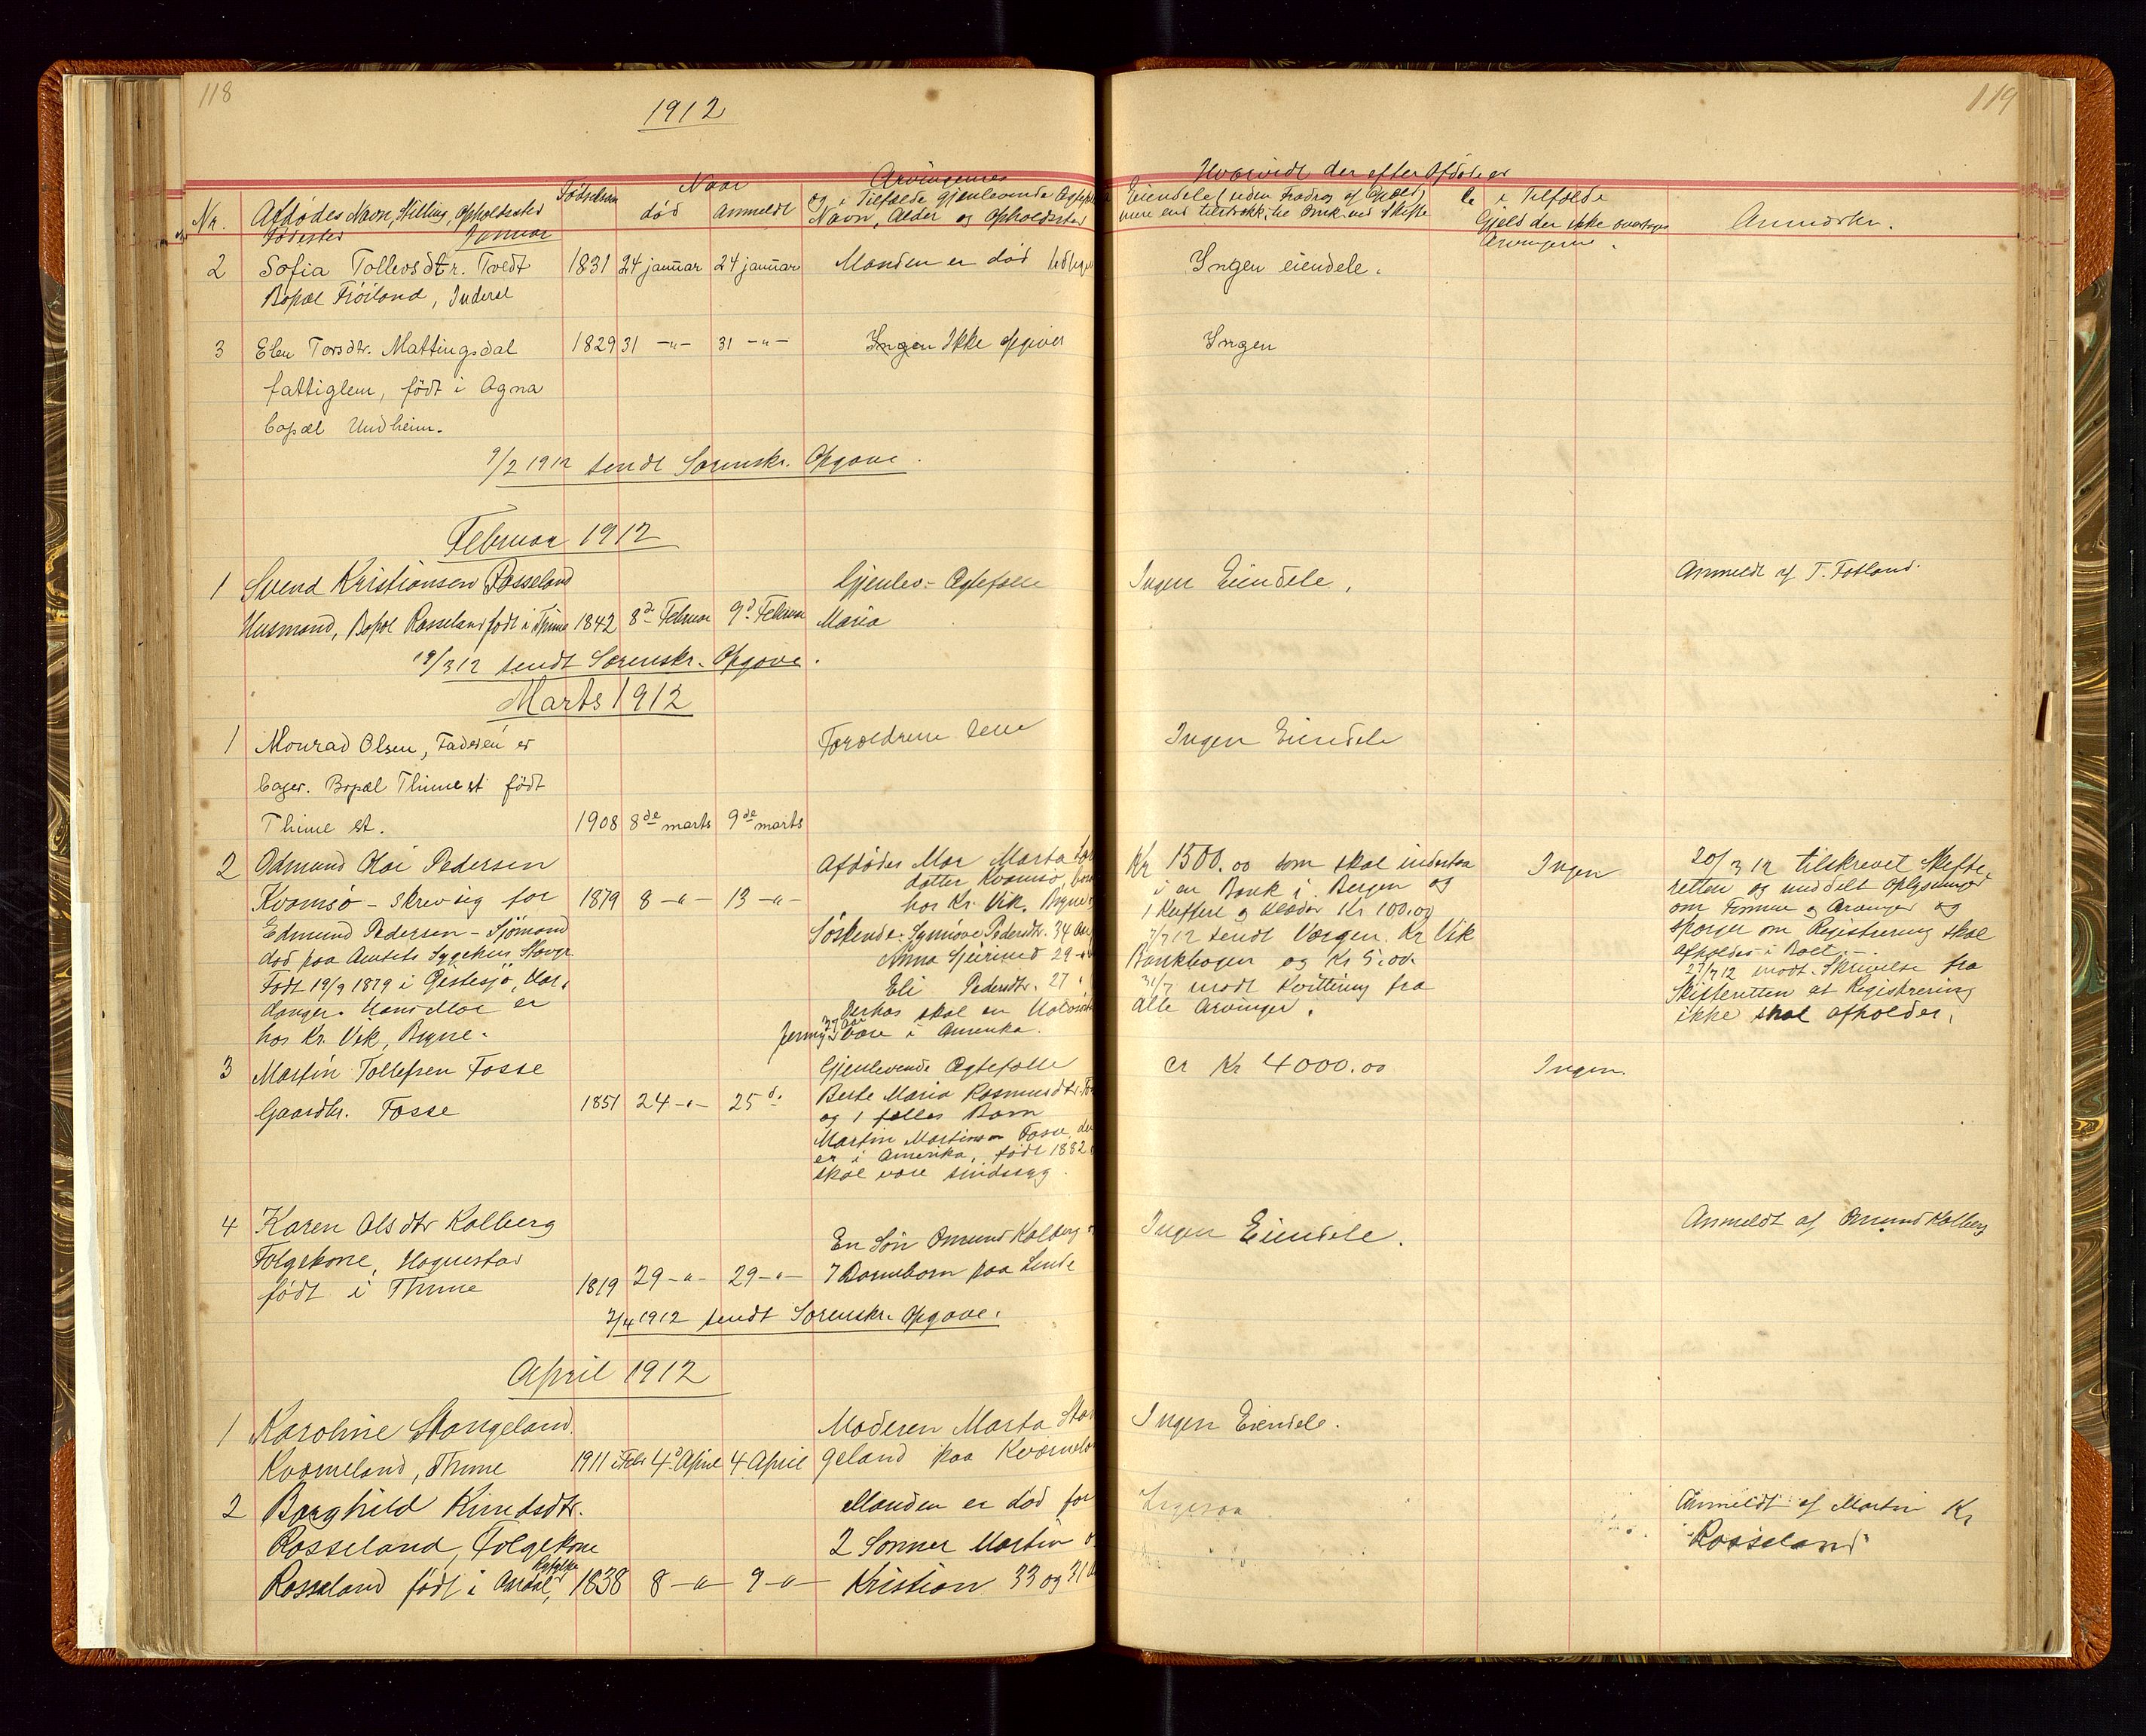 118
1912
119
Nr. Afdødes Navn, Stilling, Opholdssted
Fødested
Januar
Fødselsaar
Naar
død
Anmeldt
Arvingernes
og i Tilfælde Gjenlevende
Navn, Alder og Opholdssted
Hvorvidt der efter Afdøde er
Eiendele uden Fradrag af Gjæld
i Tilfælde
Gjæld der ikke overtages
Arvingerne.
Anmærkn.
2 Sofia Tollevsdtr. Tvedt 1831 24 januar 24 januar Manden er død Ingen eiendele.
Bopæl Frøiland,
3 Elen Torsdtr. Mattingsdal 1829 31 -"- 31 -"- Ingen Ikke opgivet Ingen
fattiglem, født i Ogna
bopæl Undheim.
9/2 1912 sendt Sorenskr. Opgave.
Februar 1912
1 Svend Kristiansen Rosseland Gjenlev. Ægtefælle Ingen Eiendele. Anmeldt af T. Fotland.
Husmand, Bopæl Rosseland født i Thime 1842 8de Februar 9d. Februar Maria
19/3 12 sendt Sorenskr. Opgave.
Marts 1912
1 Monrad Olsen, Faderen er Forældrene leve Ingen Eiendele
bager. Bopæl Thime st født
Thime st. 1908 8de marts 9de marts
2 Odmund Olai Pedersen Afdødes Mor Marta
Kvamsø - skrev sig for 1879 8 -"- 13 -"- datter Kvamsø,
Edmund Pedersen - Sjømand hos Kr. Vik. Bryne
død paa Amtets Sygehus Stavgr. Søskende: Synnøve Pedersdtr. 34
Født 19/9 1879 i Anna 29
danger. Hans Mor er Eli Pedersdtr. 27
hos Kr. Vik, Bryne. skal en
Jenny 37 Aar være i Amerika.
Kr 1500.00 som skal indestaa
i en Bank i Bergen og
1 Kuffert og klæder Kr 100.00
7/7 12 sendt Værgen. Kr Vik
Bankbogen og Kr 5.00.
31/7 modt Kvittering fra
alle arvinger.
Ingen
20/3 12 tilskrevet Skifte
retten og meddelt oplysninger
om Formue og Arvinger og
spørger om Registrering skal
afholdes i Boet. -
27/3 12 modt. Skrivelse fra
Skifteretten at Registrering
ikke skal afholdes.
3 Martin Tollefsen Fosse Gjenlevende Ægtefælle ca Kr 4000.00 Ingen.
Gaardbr. Fosse 1851 24 -"- 25 d. Berte Maria Rasmusdtr.
og 1 fælles Barn
Martin Martinsen Fosse,
er i Amerika, født 1882
skal være sindssyg.
4 Karen Olsdtr Kalberg Ingen Eiendele. Anmeldt af Omund Kalberg
Følgekone, Hognestad En Søn Omund Kalberg
født i Thime 1819 29 -"- 29 -"- 7 Barnebarn paa Lende
2/4 1912 sendt Sorenskr. Opgave.
April 1912
1 Karoline Stangeland Moderen Marta Stan Ingen Eiendele.
Kvarneland, Thime 1911 4d. April 4 April geland paa
2 Borghild Knudsdtr. Manden er død før Anmeldt af Martin Kr
Rosseland, Følgekone 2 Sønner Martin Rosseland
Rosseland født i 1838 8 -"- 9 -"- Kristian 33 og 31